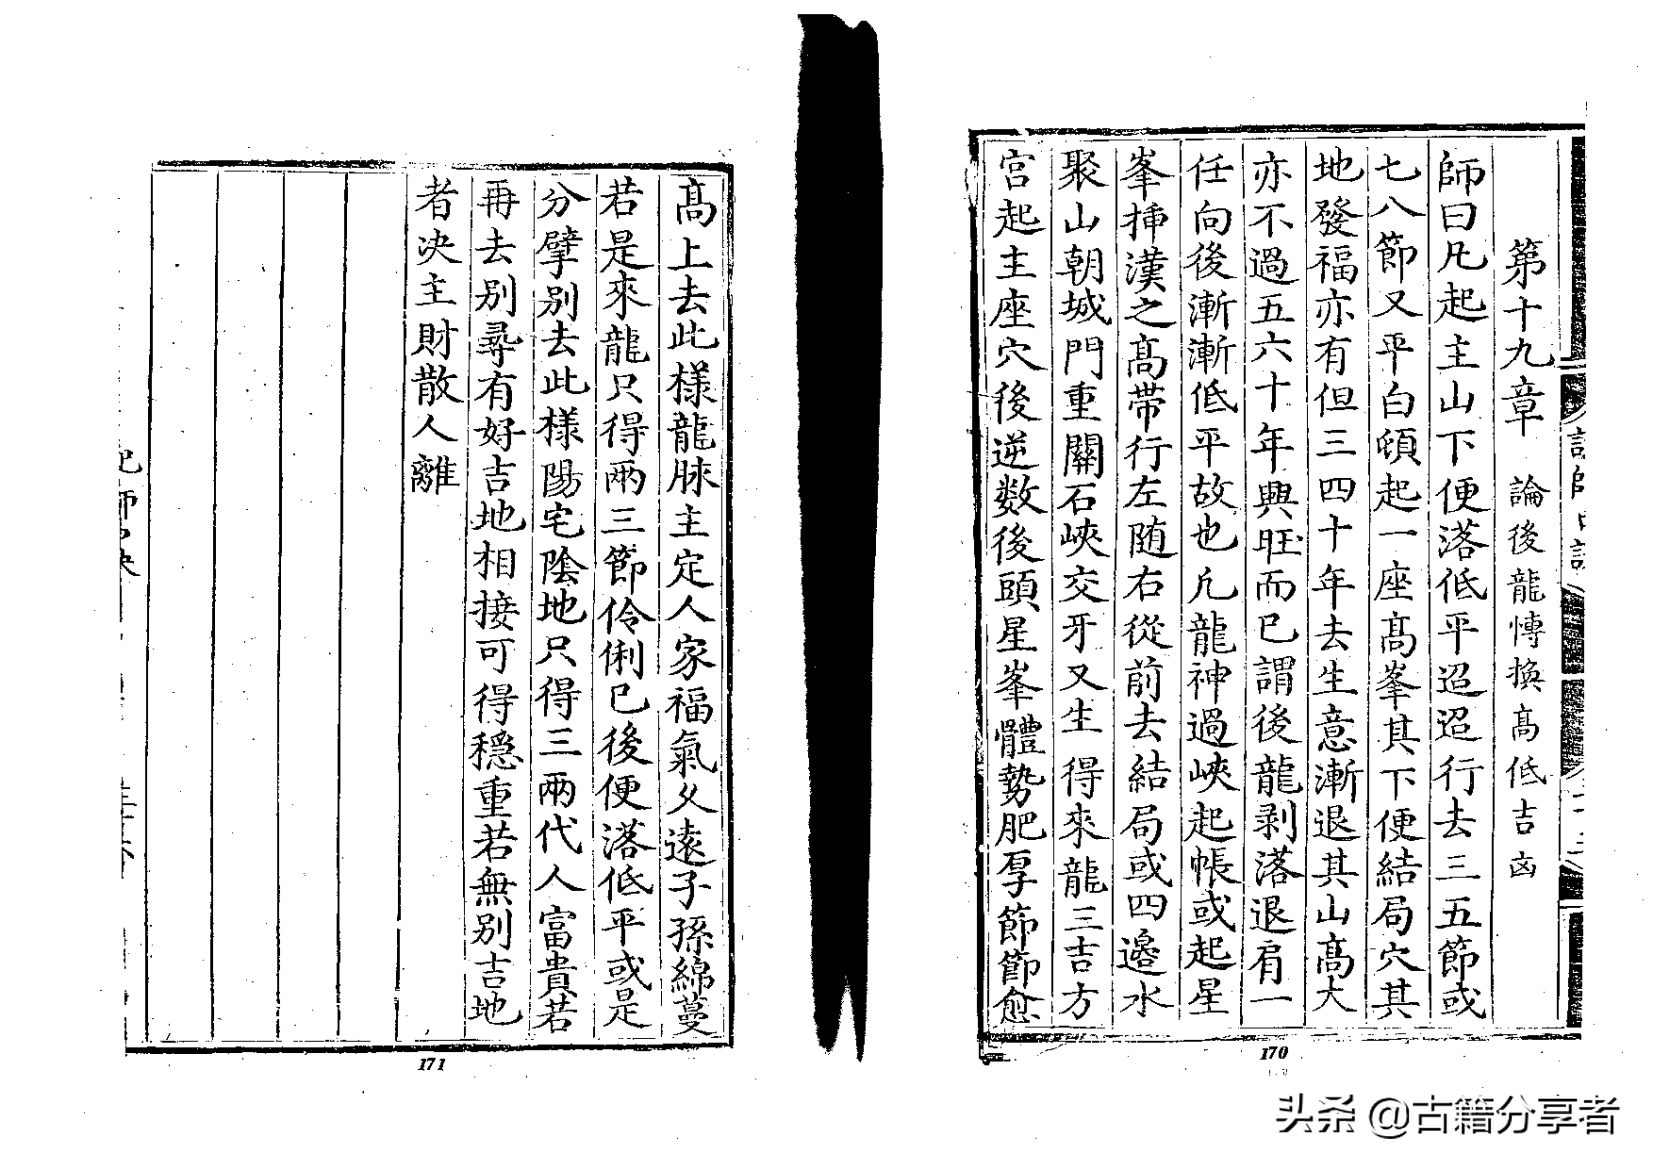 第十九章 論後龍愽換髙低吉凶
師曰凡起主山下便落低平迢迢行去三五節或
七八節又平白頓起一座髙峯其下便結局穴其
地發福亦有但三四十年去生意漸退其山髙大
亦不過五六十年興旺而已謂後龍剥落退肩一
任向後漸漸低平故也凡龍神過峽起帳或起星
峯揷漢之髙帶行左随右從前去結局或四邉水
聚山朝城門重關石峽交牙又生得來龍三吉方
宮起主座穴後逆数後頭星峯體勢肥厚節節愈
170
髙上去此様龍脉主定人家福氣久遠子孫綿蔓
若是來龍只得兩三節伶俐已後便落低平或是
分擘别去此様陽宅陰地只得三兩代人富貴若
再去别尋有好吉地相接可得穏重若無别吉地
者决主財散人離
171
头条 @古籍分享者